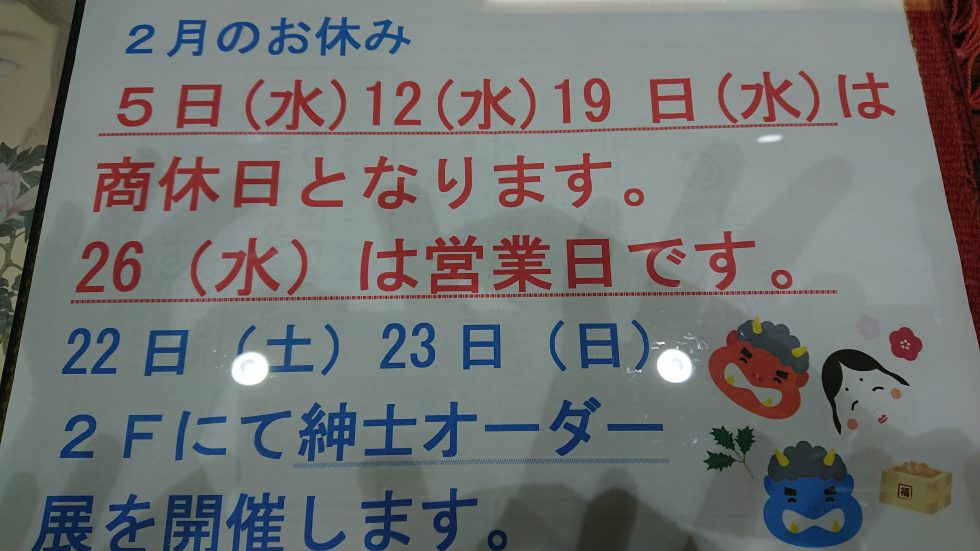 ２月のお休み
５日(水)12(水)19 日(水)は
商休日となります。
26（水）は営業日です。
22日（土）23日（日）
２Ｆにて紳士オーダー
展を開催します。
福